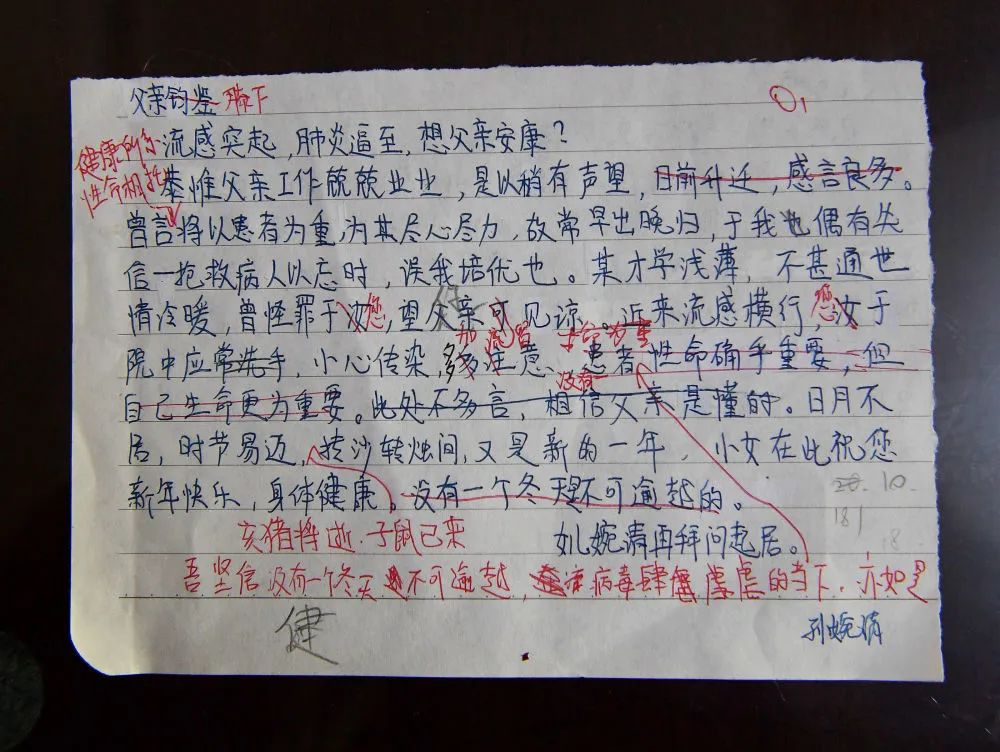 父亲钧鉴 膝下
流感突起，肺炎逼至，想父亲安康？
健康所系
性命相托
恭惟父亲工作兢兢业业，是以稍有声望，日前升迁，感言良多。
曾言将以患者为重，为其尽心尽力，故常早出晚归，于我也偶有失
信一抢救病人以忘时，误我培优也。某才学浅薄，不甚通世
情冷暖，曾怪罪于汝您，望父亲可见谅。近来流感横行，您汝于
院中应常洗手，小心传染，多注意、患者性命确乎重要，但
自己生命更为重要。此处不多言，相信父亲是懂的。日月不
居，时节易迈，转沙转烛间，又是新的一年，小女在此祝您
新年快乐，身体健康。没有一个冬天是不可逾越的。
亥猪将逝，子鼠已来
女儿婉清再拜问起居。
吾坚信没有一个冬天不可逾越，病毒肆虐的当下，亦如是
孙婉清
健